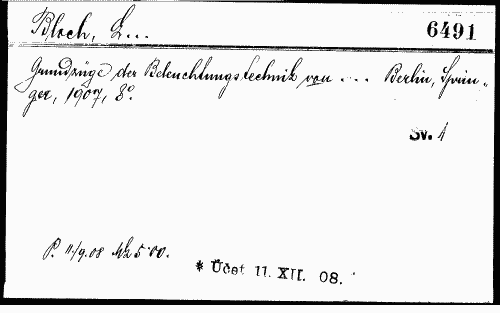 Bloch, L... 6491
Grundzüge der Beleuchtungstechnik von ... Berlin, Sprin-
ger, 1907, 8°.
Sv. 1
P. 11/9.08 Mk 5·00.
* Účet 11. XII. 08.